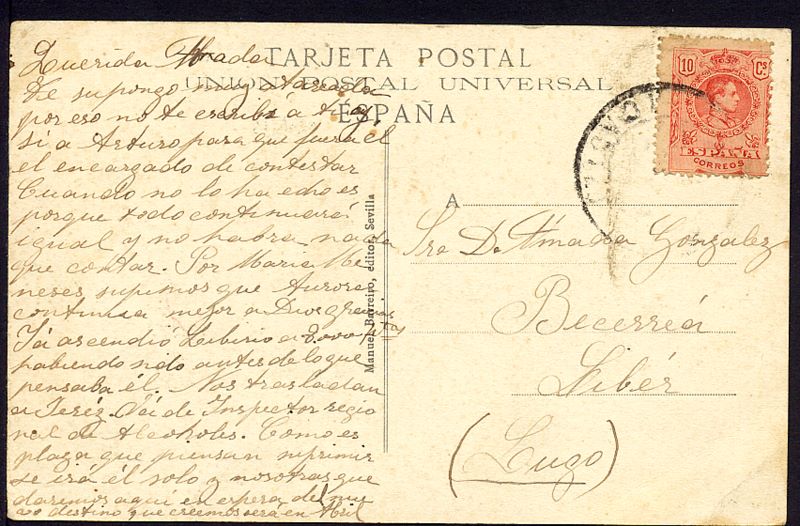 TARJETA POSTAL
UNION POSTAL UNIVERSAL
ESPAÑA
10 Cs
ESPAÑA
CORREOS
Querida Amada
Te supongo muy
por eso no te escribí á tí y
si a Arturo para que fuera él
el encargado de contestar
Cuando no lo ha echo es
porque todo continuará
igual y no habrá nada
que contar. Por Maria Me
neses supimos que Aurora
continua mejor a Dios gracias
Yá ascendió Liborio a 3.000 ptas
habiendo sido antes de lo que
pensaba él. Nos trasladan
a Jeréz. Vá de Inspector regio
nal de Alcoholes. Como es
plaza que piensan suprimir
se irá él solo y nosotras que
daremos aquí en espera del nue
vo destino que creemos será en Abril
Manuel Barreiro, editor, Sevilla
A
Sra Dª Amada Gonzalez
Becerréa
Libér
(Lugo)